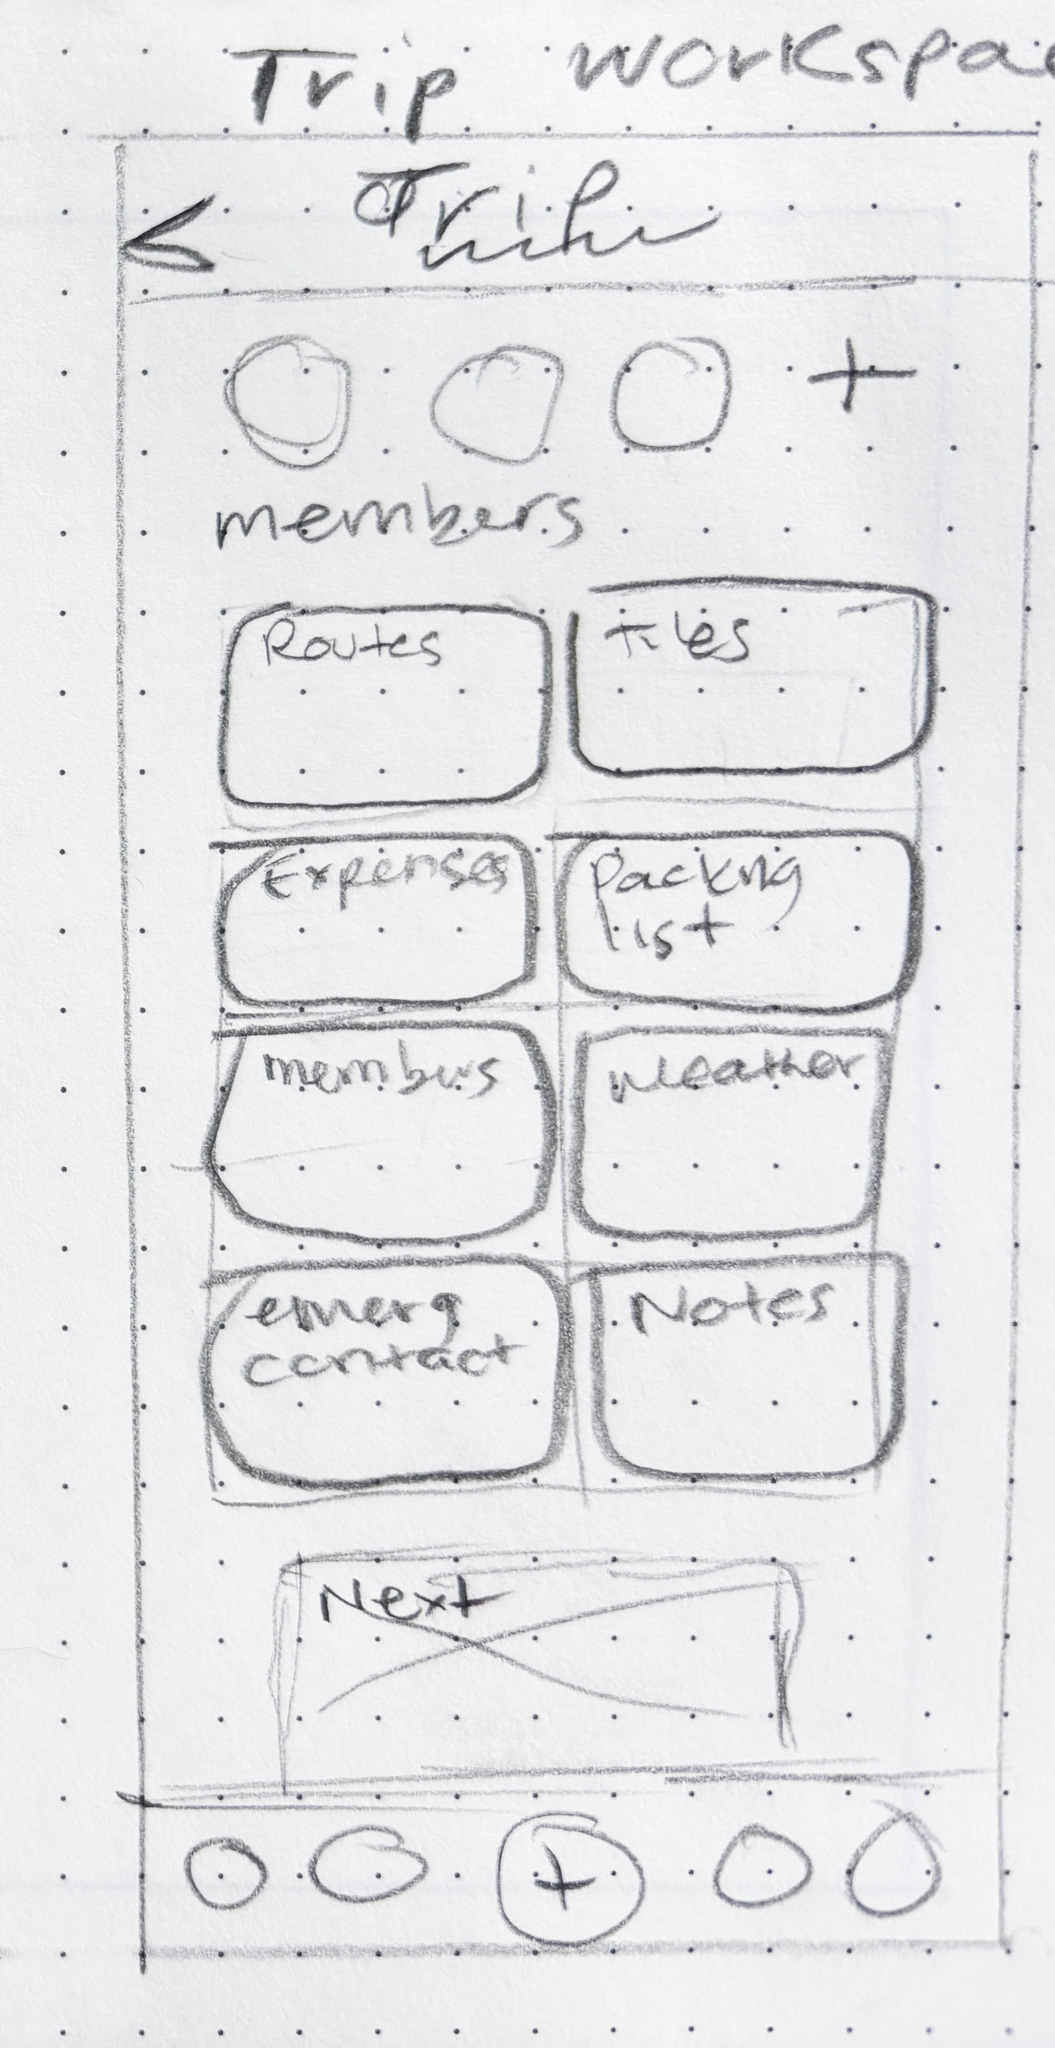 Trip Workspac
Trip
+
members
Routes
Files
Expenses
Packing
list
members
Weather
emerg
contact
Notes
Next
+